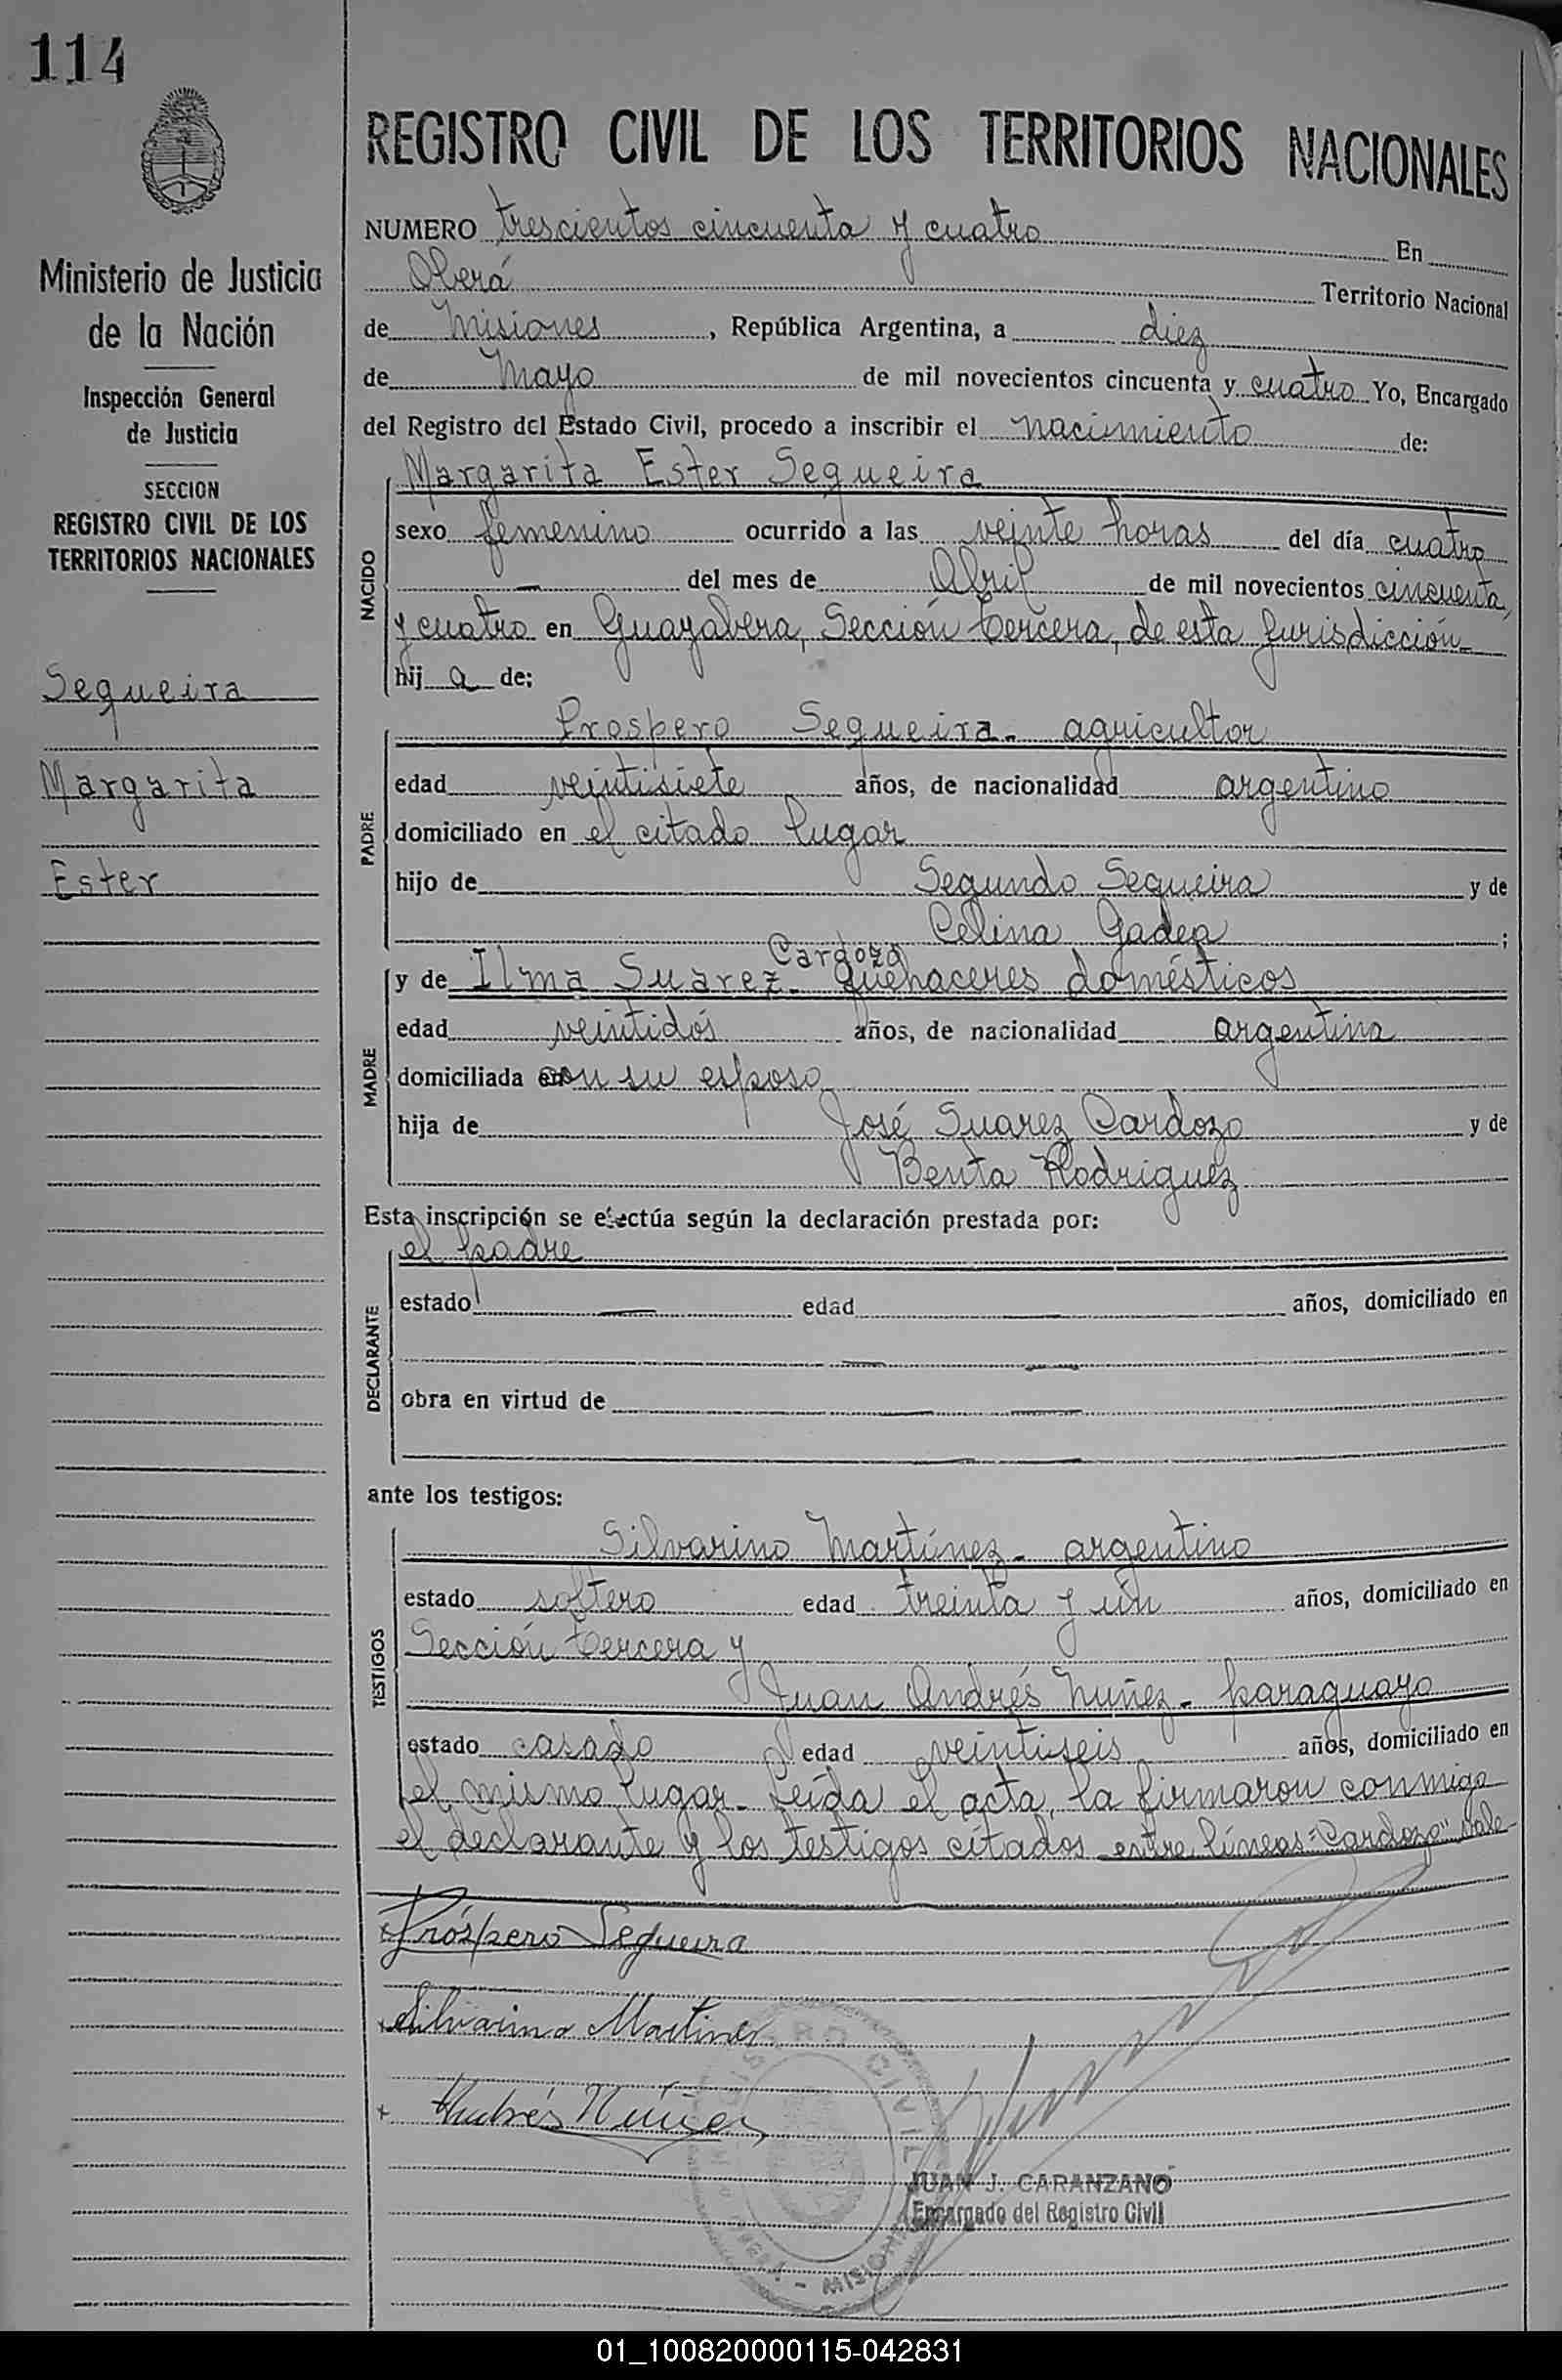 114
REGISTRO CIVIL DE LOS TERRITORIOS NACIONALES
Ministerio de Justicia
de la Nación
Inspección General
de Justicia
SECCION
REGISTRO CIVIL DE LOS
TERRITORIOS NACIONALES
Sequeira
Margarita
Ester
NUMERO trescientos cincuenta y cuatro En
Oberá Territorio Nacional
de Misiones, República Argentina, a diez
de Mayo de mil novecientos cincuenta y cuatro Yo, Encargado
del Registro del Estado Civil, procedo a inscribir el nacimiento de:
Margarita Ester Sequeira
NACIDO
sexo femenino ocurrido a las veinte horas del día cuatro
— del mes de Abril de mil novecientos cincuenta
y cuatro en Guayabera, Sección tercera, de esta jurisdicción
hij a de:
PADRE
Prospero Sequeira - agricultor
edad veintisiete años, de nacionalidad argentino
domiciliado en el citado lugar
hijo de Segundo Sequeira y de
Celina Gadea ;
MADRE
Cardozo
y de Ilma Suarez - quehaceres domésticos
edad veintidós años, de nacionalidad argentina
domiciliada con su esposo
hija de José Suarez Cardozo y de
Benta Rodriguez
Esta inscripción se efectúa según la declaración prestada por:
DECLARANTE
el padre
estado — edad — años, domiciliado en
— —
obra en virtud de — —
ante los testigos:
TESTIGOS
Silvarino Martínez - argentino
estado soltero edad treinta y ún años, domiciliado en
Sección tercera y
Juan Andrés Nuñez - paraguayo
estado casado edad veintiseis años, domiciliado en
el mismo lugar - Leída el acta, la firmaron conmigo
el declarante y los testigos citados entre líneas: "Cardozo" Vale -
Próspero Sequeira
Silvarino Martinez
Andrés Núñez
REGISTRO CIVIL
OBERA - MISIONES
JUAN J. CARANZANO
Encargado del Registro Civil
01_100820000115-042831